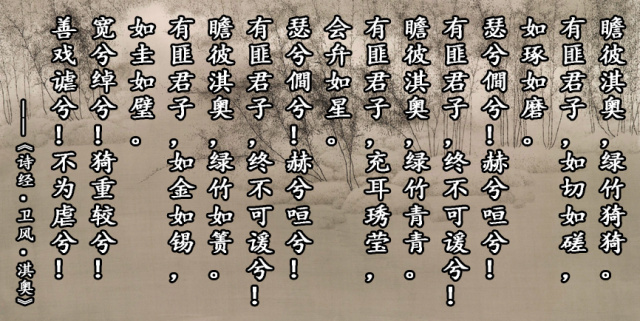 瞻彼淇奥,绿竹猗猗。
有匪君子,如切如磋,
如琢如磨。
瑟兮僩兮!赫兮咺兮!
有匪君子,终不可谖兮!
瞻彼淇奥,绿竹青青。
有匪君子,充耳琇莹,
会弁如星。
瑟兮僩兮!赫兮咺兮!
有匪君子,终不可谖兮!
瞻彼淇奥,绿竹如箦。
有匪君子,如金如锡,
如圭如璧。
宽兮绰兮!猗重较兮!
善戏谑兮!不为虐兮!
——《诗经·卫风·淇奥》